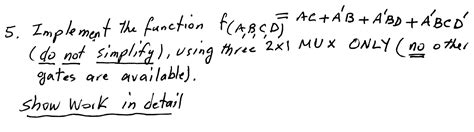 5. Implement the function f(A,B,C,D) = AC + A'B + A'BD + A'BCD'
(do not simplify), using three 2x1 MUX ONLY (no other
gates are available).
Show Work in detail